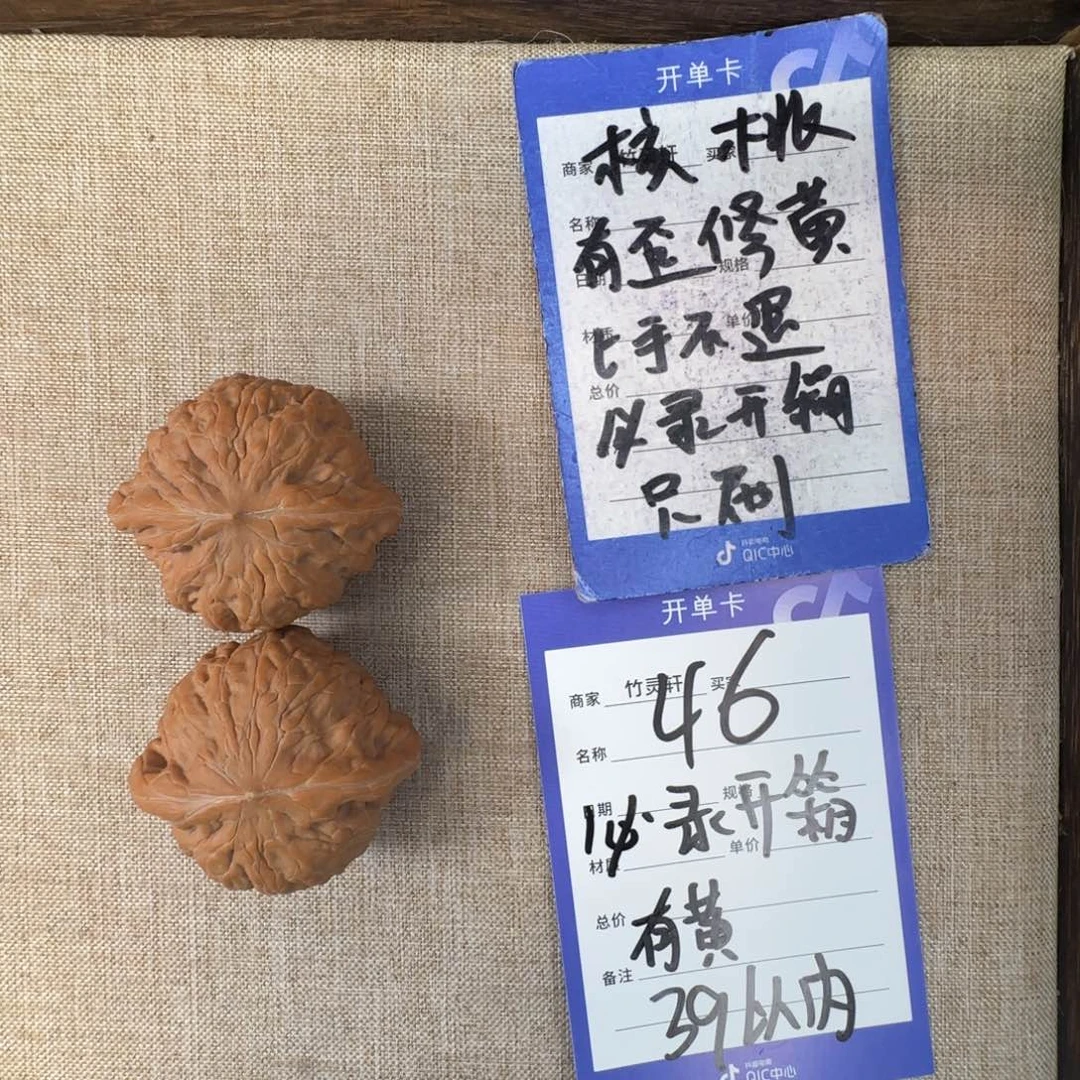 开单卡
核桃
商家 竹灵轩 买家
名称
有歪修黄
日期 规格
材质 单价
上手不退
总价
必录开箱
只刷
抖音电商
QIC中心
开单卡
46
商家 竹灵轩 买家
名称
日期 规格
必录开箱
材质 单价
总价
有黄
备注
39以内
抖音电商
QIC中心